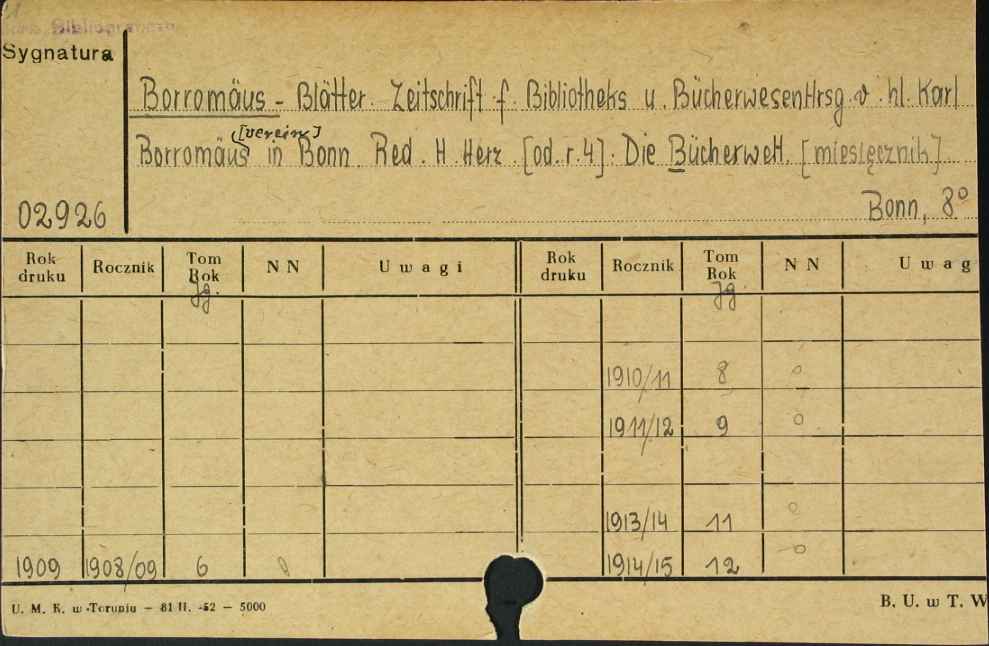 Sygnatura
Borromäus - Blätter. Zeitschrift f. Bibliotheks u. Bücherwesen Hrsg. v. hl. Karl
[verein]
Borromäus in Bonn Red. H. Herz. [od. r. 4]. Die Bücherwelt. [miesięcznik].
02926
Bonn, 8°
Rok druku Rocznik Tom Rok Jg. N N Uwagi Rok druku Rocznik Tom Rok Jg. N N Uwag
1910/11 8 0
1911/12 9 0
1913/14 11 0
1909 1908/09 6 0 1914/15 12 0
U. M. K. w Toruniu — 81 II. -52 — 5000
B. U. w T. W